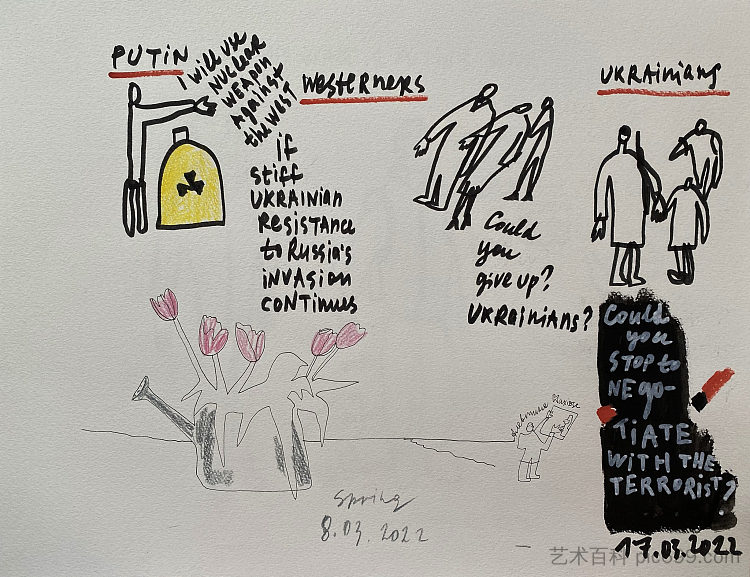 PUTIN
I will use
NUCLEAR
WEAPON
AGAINST
the WEST
if
stiff
UKRAINIAN
RESISTANCE
to Russia's
iNVASION
CONTINUES
WESTERNERS
Could
you
give up?
UKRAINIANS?
UKRAINIANS
Could
you
STOP to
NEGO-
TIATE
WITH THE
TERRORIST?
17.03.2022
spring
8.03.2022
艺术百科